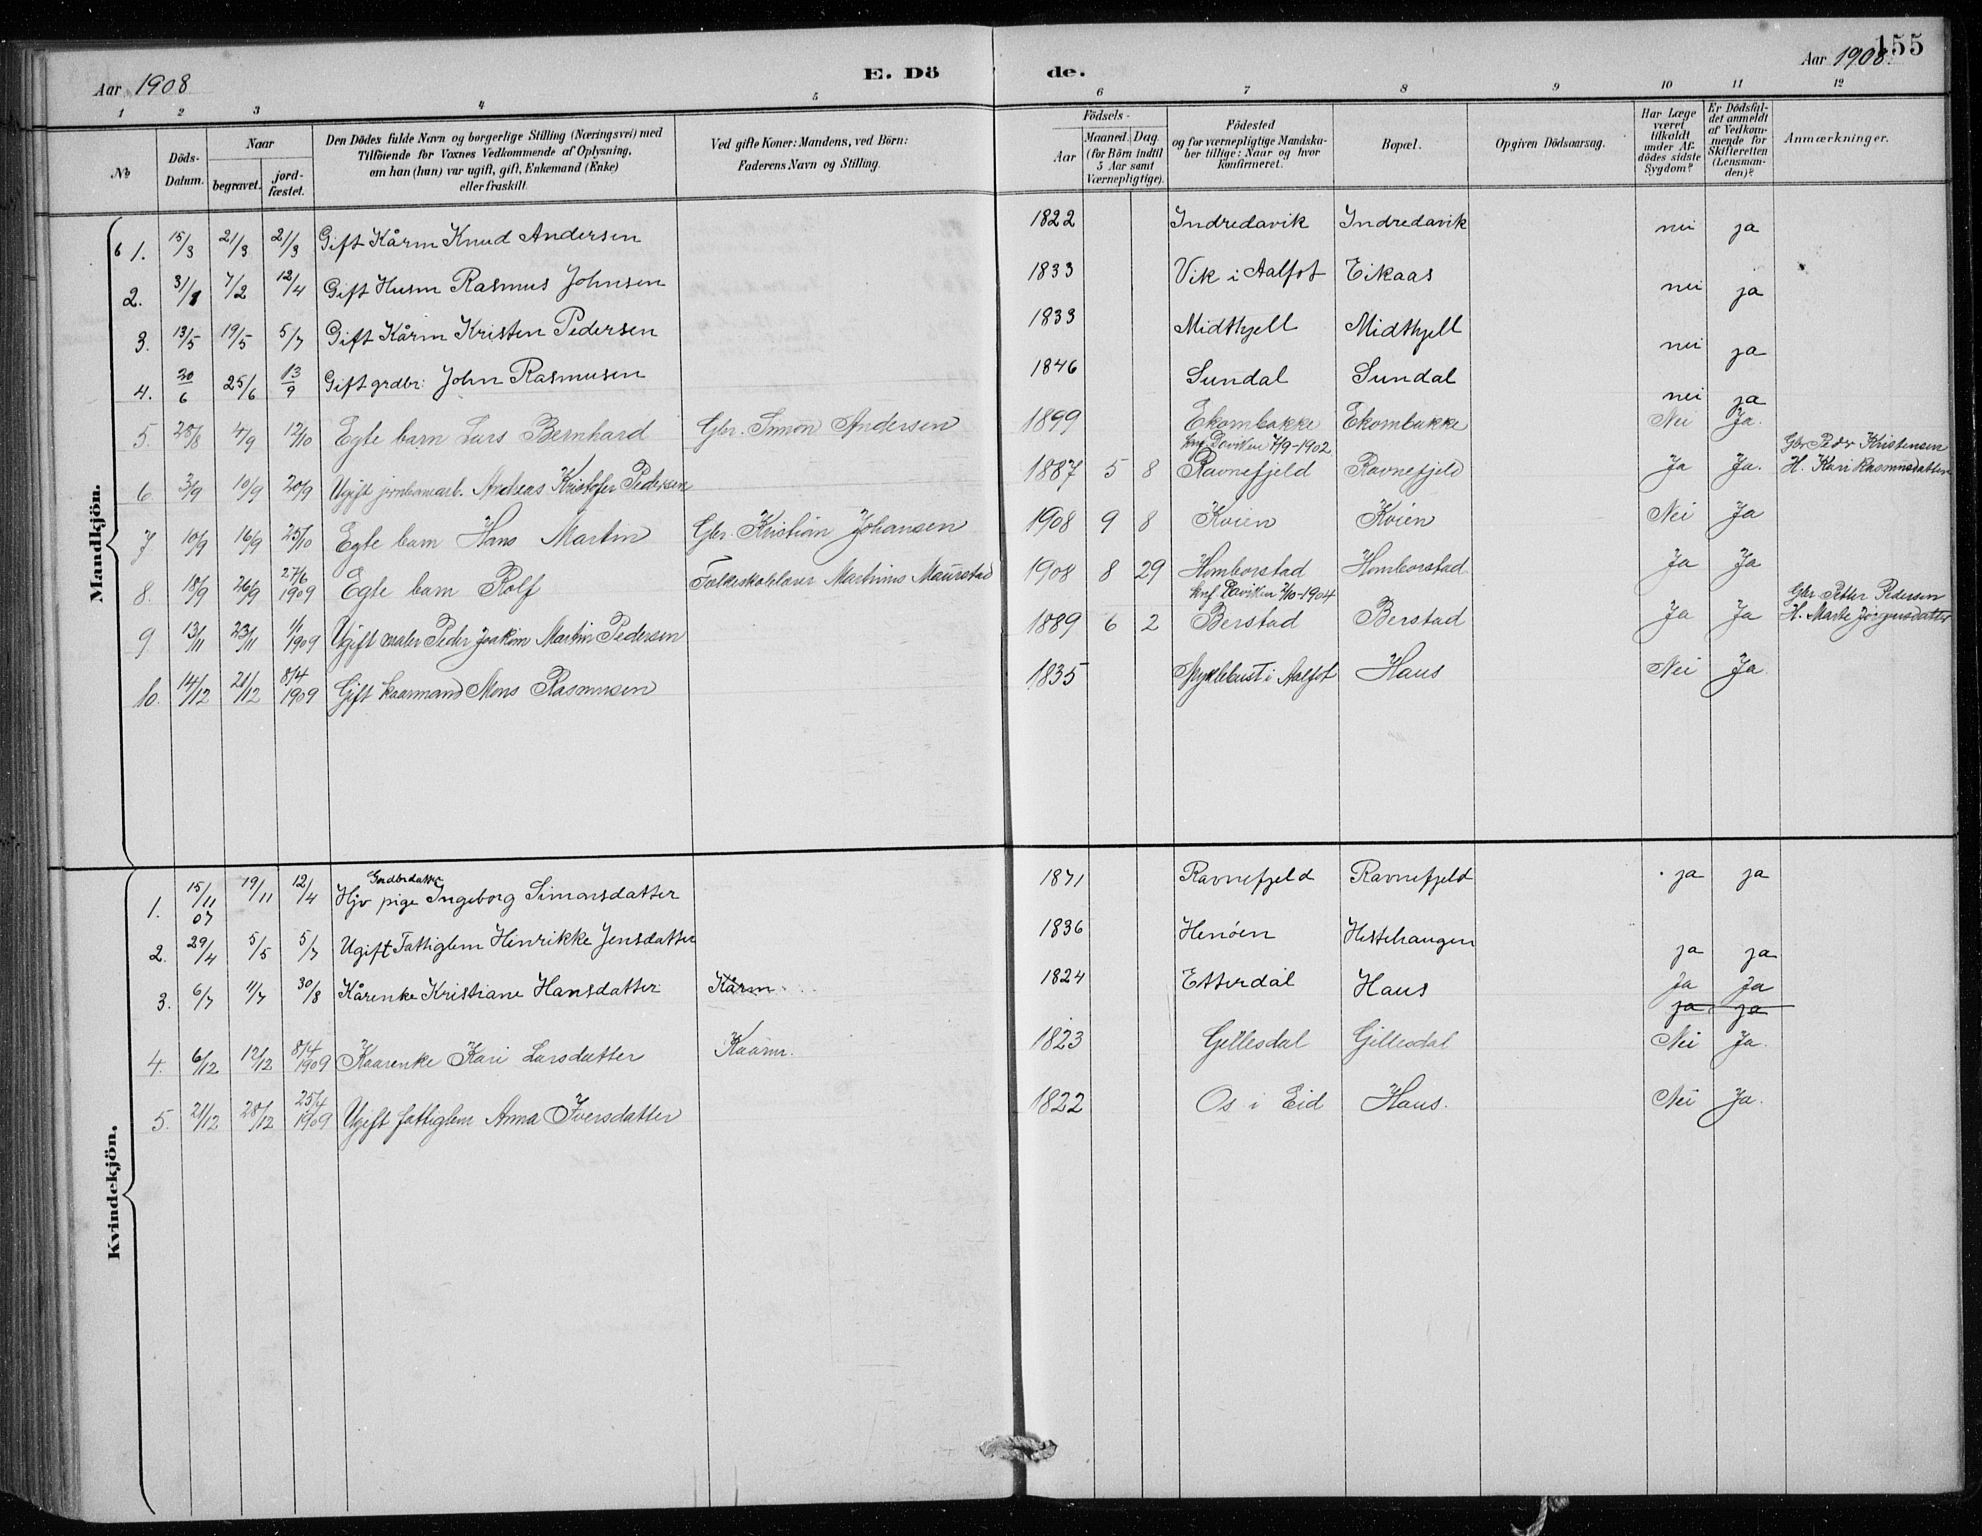 155
Aar 1908 E. Dö de. Aar 1908
1 2 3 4 5 6 7 8 9 10 11 12
No Döds-Datum. Naar begravet. jordfæstet. Den Dödes fulde Navn og borgerlige Stilling (Næringsvei) med Tilföiende for Voxnes Vedkommende af Oplysning, om han (hun) var ugift, gift, Enkemand (Enke) eller fraskilt. Ved gifte Koner: Mandens, ved Börn: Faderens Navn og Stilling. Födsels- Aar Maaned. Dag. (for Börn indtil 5 Aar samt Værnepligtige). Födested og for værnepligtige Mandskaber tillige: Naar og hvor konfirmeret. Bopæl. Opgiven Dödsaarsag. Har Læge været tilkaldt under Afdödes sidste Sygdom? Er Dödsfaldet anmeldt af Vedkommende for Skifteretten (Lensmanden)? Anmærkninger.
Mandkjön.
6 1. 15/3 21/3 21/3 Gift Kårm Knud Andersen 1822 Indredavik Indredavik nei ja
2. 31/1 7/2 12/4 Gift Husm Rasmus Johnsen 1833 Vik i Aalfot Eikaas nei ja
3. 13/5 19/5 5/7 Gift Kårm Kristen Pedersen 1833 Midthjell Midthjell nei ja
4. 20/6 25/6 13/9 Gift grdbr: John Rasmusen 1846 Sundal Sundal nei ja
5. 28/8 4/9 12/10 Egte barn Lars Bernhard Gbr. Simon Andersen 1899 Ekombakke Ekombakke Nei Ja.
6. 3/9 10/9 20/9 Ugift jernbanearb. Andreas Kristofer Pedersen 1887 5 8 knf. Daviken 7/9-1902 Ravnefjeld Ravnefjeld Ja Ja. Gbr Peder Kristensen H. Kari Rasmusdatter
7 10/9 16/9 25/10 Egte barn Hans Martin Gbr. Kristian Johansen 1908 9 8 Kvien Kvien Nei Ja
8. 18/9 26/9 27/6 1909 Egte barn Rolf Folkeskolelærer Martinus Maurstad 1908 8 29 Homborstad Homborstad Ja Ja
9 13/11 23/11 1/1 1909 Ugift maler Peder Joakim Martin Pedersen 1889 6 2 knf Daviken 2/10-1904 Berstad Berstad Ja Ja Gbr Petter Pedersen H. Marte Jørgensdatter
10. 14/12 21/12 8/4 1909 Gift kaarmand Mons Rasmusen 1835 Myklebust i Aalfot Haus Nei Ja.
Kvindekjön.
1. 15/11 07 19/11 12/4 Grdbrdatter Hjv pige Ingeborg Simonsdatter 1871 Ravnefjeld Ravnefjeld ja ja
2. 29/4 5/5 5/7 Ugift Fattiglem Henrikke Jensdatter 1836 Henøen Hestehaugen ja ja
3. 6/7 11/7 30/8 Kårenke Kristiane Hansdatter Kårm 1824 Etterdal Haus Ja Ja
ja ja
4. 6/12 12/12 8/4 1909 Kaarenke Kari Larsdatter Kaarm. 1823 Gillesdal Gillesdal Nei Ja.
5. 21/12 28/12 25/4 1909 Ugift fattiglem Anna Iversdatter 1822 Os i Eid Haus. Nei Ja.